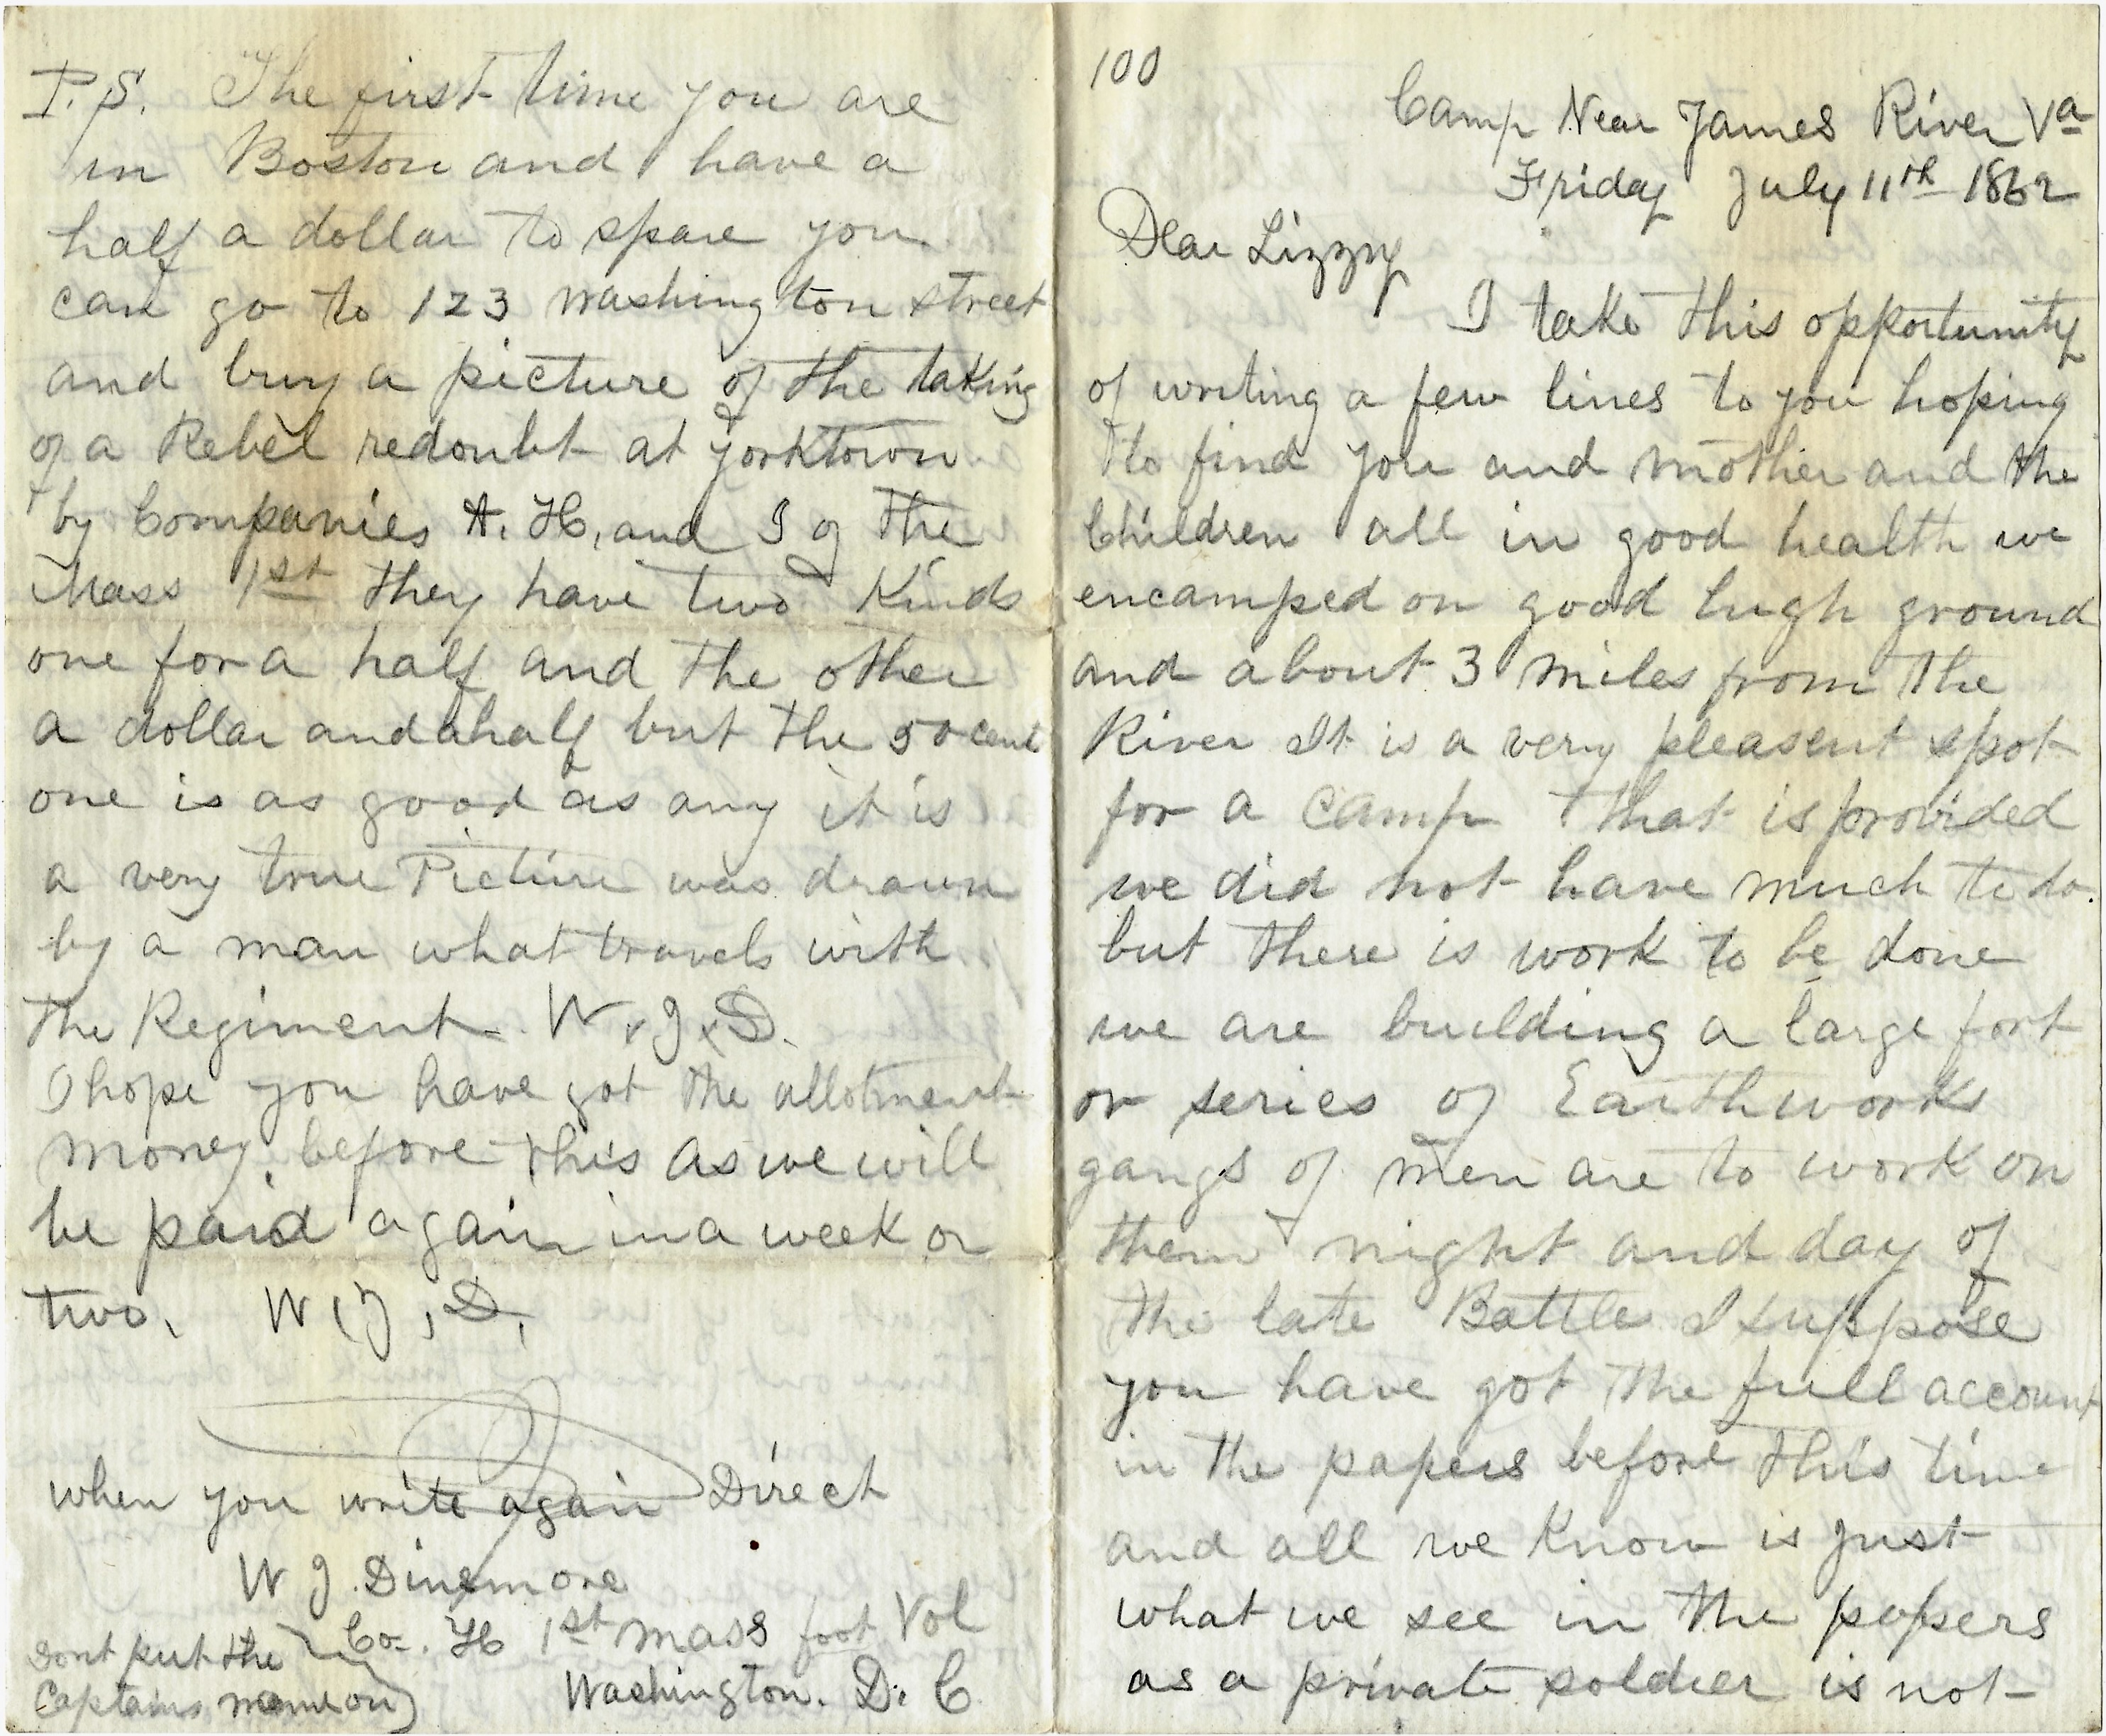 100
Camp Near James River Va
Friday July 11th 1862
Dear Lizzy
I take this opportunity
of writing a few lines to you hoping
to find you and mother and the
Children all in good health we
encamped on good high ground
and about 3 miles from the
River It is a very pleasent spot
for a camp that is provided
we did not have much to do.
but there is work to be done
we are building a large fort
or series of Earthworks
gangs of men are to work on
them night and day of
the late Battle I suppose
you have got the full account
in the papers before this time
and all we know is just
what we see in the papers
as a private soldier is not
P.S. The first time you are
in Boston and have a
half a dollar to spare you
can go to 123 Washington street
and buy a picture of the taking
of a Rebel redoubt at yorktown
by Companies A. H, and I of the
Mass 1st they have two Kinds
one for a half and the other
a dollar and a half but the 50 cent
one is as good as any it is
a very true Picture was drawn
by a man what travels with
the Regiment. W. J. D.
I hope you have got the allotment
money before this as we will
be paid again in a week or
two. W, J, D,
when you write again Direct
W J. Dinsmore
Co. H 1st mass foot Vol
Washington. D. C.
Dont put the
Captains name on